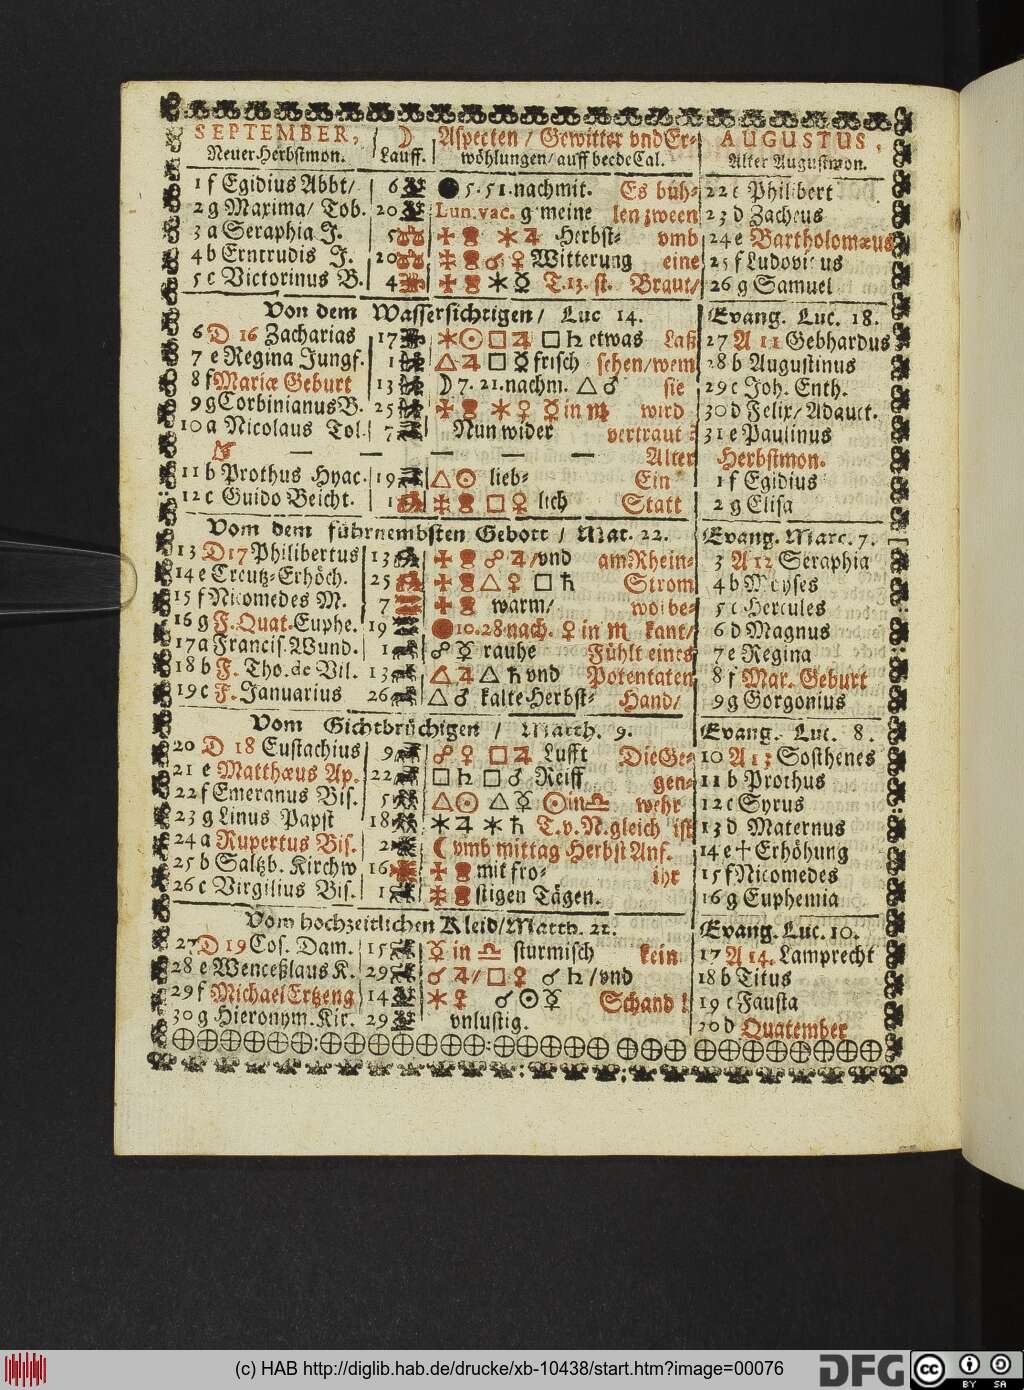 SEPTEMBER, ☽ Aspecten / Gewitter vnd Er- AUGUSTUS,
Neuer Herbstmon. Lauff. wöhlungen / auff beede Cal. Alter Augustmon.
1 f Egidius Abbt/ 6 ● 5. 51. nachmit. Es büh- 22 c Philibert
2 g Maxima/ Tob. 20 Lun. vac. gmeine len zween 23 d Zacheus
3 a Seraphia J. 5 ✠ ⚹ ♃ Herbst- vmb 24 e Bartholomæus
4 b Erntrudis J. 20 ✠ ☌ ♀ Witterung eine 25 f Ludovicus
5 c Victorinus B. 4 ✠ ⚹ ☿ T. 13. st. Braut/ 26 g Samuel
Von dem Wassersichtigen / Luc 14. Evang. Luc. 18.
6 D 16 Zacharias 17 ⚹ ☉ □ ♃ □ ♄ etwas Laß 27 A 11 Gebhardus
7 e Regina Jungf. 1 △ ♃ □ ☿ frisch sehen/wem 28 b Augustinus
8 f Mariæ Geburt 13 ☽ 7. 21. nachm. △ ♂ sie 29 c Joh. Enth.
9 g Corbinianus B. 25 ✠ ⚹ ♀ ☿ in ♍ wird 30 d Felix/ Adauct.
10 a Nicolaus Tol. 7 Nun wider vertraut: 31 e Paulinus
— — — — — Alter Herbstmon.
11 b Prothus Hyac. 19 △ ☉ lieb- Ein 1 f Egidius
12 c Guido Beicht. 1 ✠ □ ♀ lich Statt 2 g Elisa
Vom dem führnembsten Gebott / Mat. 22. Evang. Marc. 7.
13 D 17 Philibertus 13 ✠ ☍ ♃/vnd am Rhein- 3 A 12 Seraphia
14 e Creutz-Erhöch. 25 ✠ △ ♀ □ ♄ Strom 4 b Moyses
15 f Nicomedes M. 7 ✠ warm/ wolbe- 5 c Hercules
16 g F. Quat. Euphe. 19 ● 10. 28. nach. ♀ in ♏ kant/ 6 d Magnus
17 a Francis. Wund. 1 ☍ ☿ rauhe Fühlt eines 7 e Regina
18 b F. Tho. de Vil. 13 △ ♃ △ ♄ vnd Potentaten 8 f Mar. Geburt
19 c F. Januarius 26 △ ♂ kalte Herbst- Hand/ 9 g Gorgonius
Vom Gichtbrüchigen / Matth. 9. Evang. Luc. 8.
20 D 18 Eustachius 9 ☍ ♀ □ ♃ Lufft Die Ge- 10 A 13 Sosthenes
21 e Matthæus Ap. 22 □ ♄ □ ♂ Reiff gen- 11 b Prothus
22 f Emeranus Bis. 5 △ ☉ △ ☿ ☉ in ♎ wehr 12 c Syrus
23 g Linus Papst 18 ⚹ ♃ ⚹ ♄ T. v. N. gleich ist 13 d Maternus
24 a Rupertus Bis. 2 ☾ vmb mittag Herbst Anf. 14 e † Erhöhung
25 b Saltzb. Kirchw 16 ✠ mit fro- ihr 15 f Nicomedes
26 c Virgilius Bis. 1 ✠ stigen Tägen. 16 g Euphemia
Vom hochzeitlichen Kleid / Matth. 22. Evang. Luc. 10.
27 D 19 Cos. Dam. 15 ☿ in ♎ sturmisch kein 17 A 14. Lamprecht
28 e Wenceßlaus K. 29 ☌ ♃/ □ ♀ ☌ ♄ /vnd 18 b Titus
29 f Michael Ertzeng 14 ⚹ ♀ ☌ ☉ ☿ Schand! 19 c Fausta
30 g Hieronym. Kir. 29 vnlustig. 20 d Quatember
(c) HAB http://diglib.hab.de/drucke/xb-10438/start.htm?image=00076
DFG cc BY SA